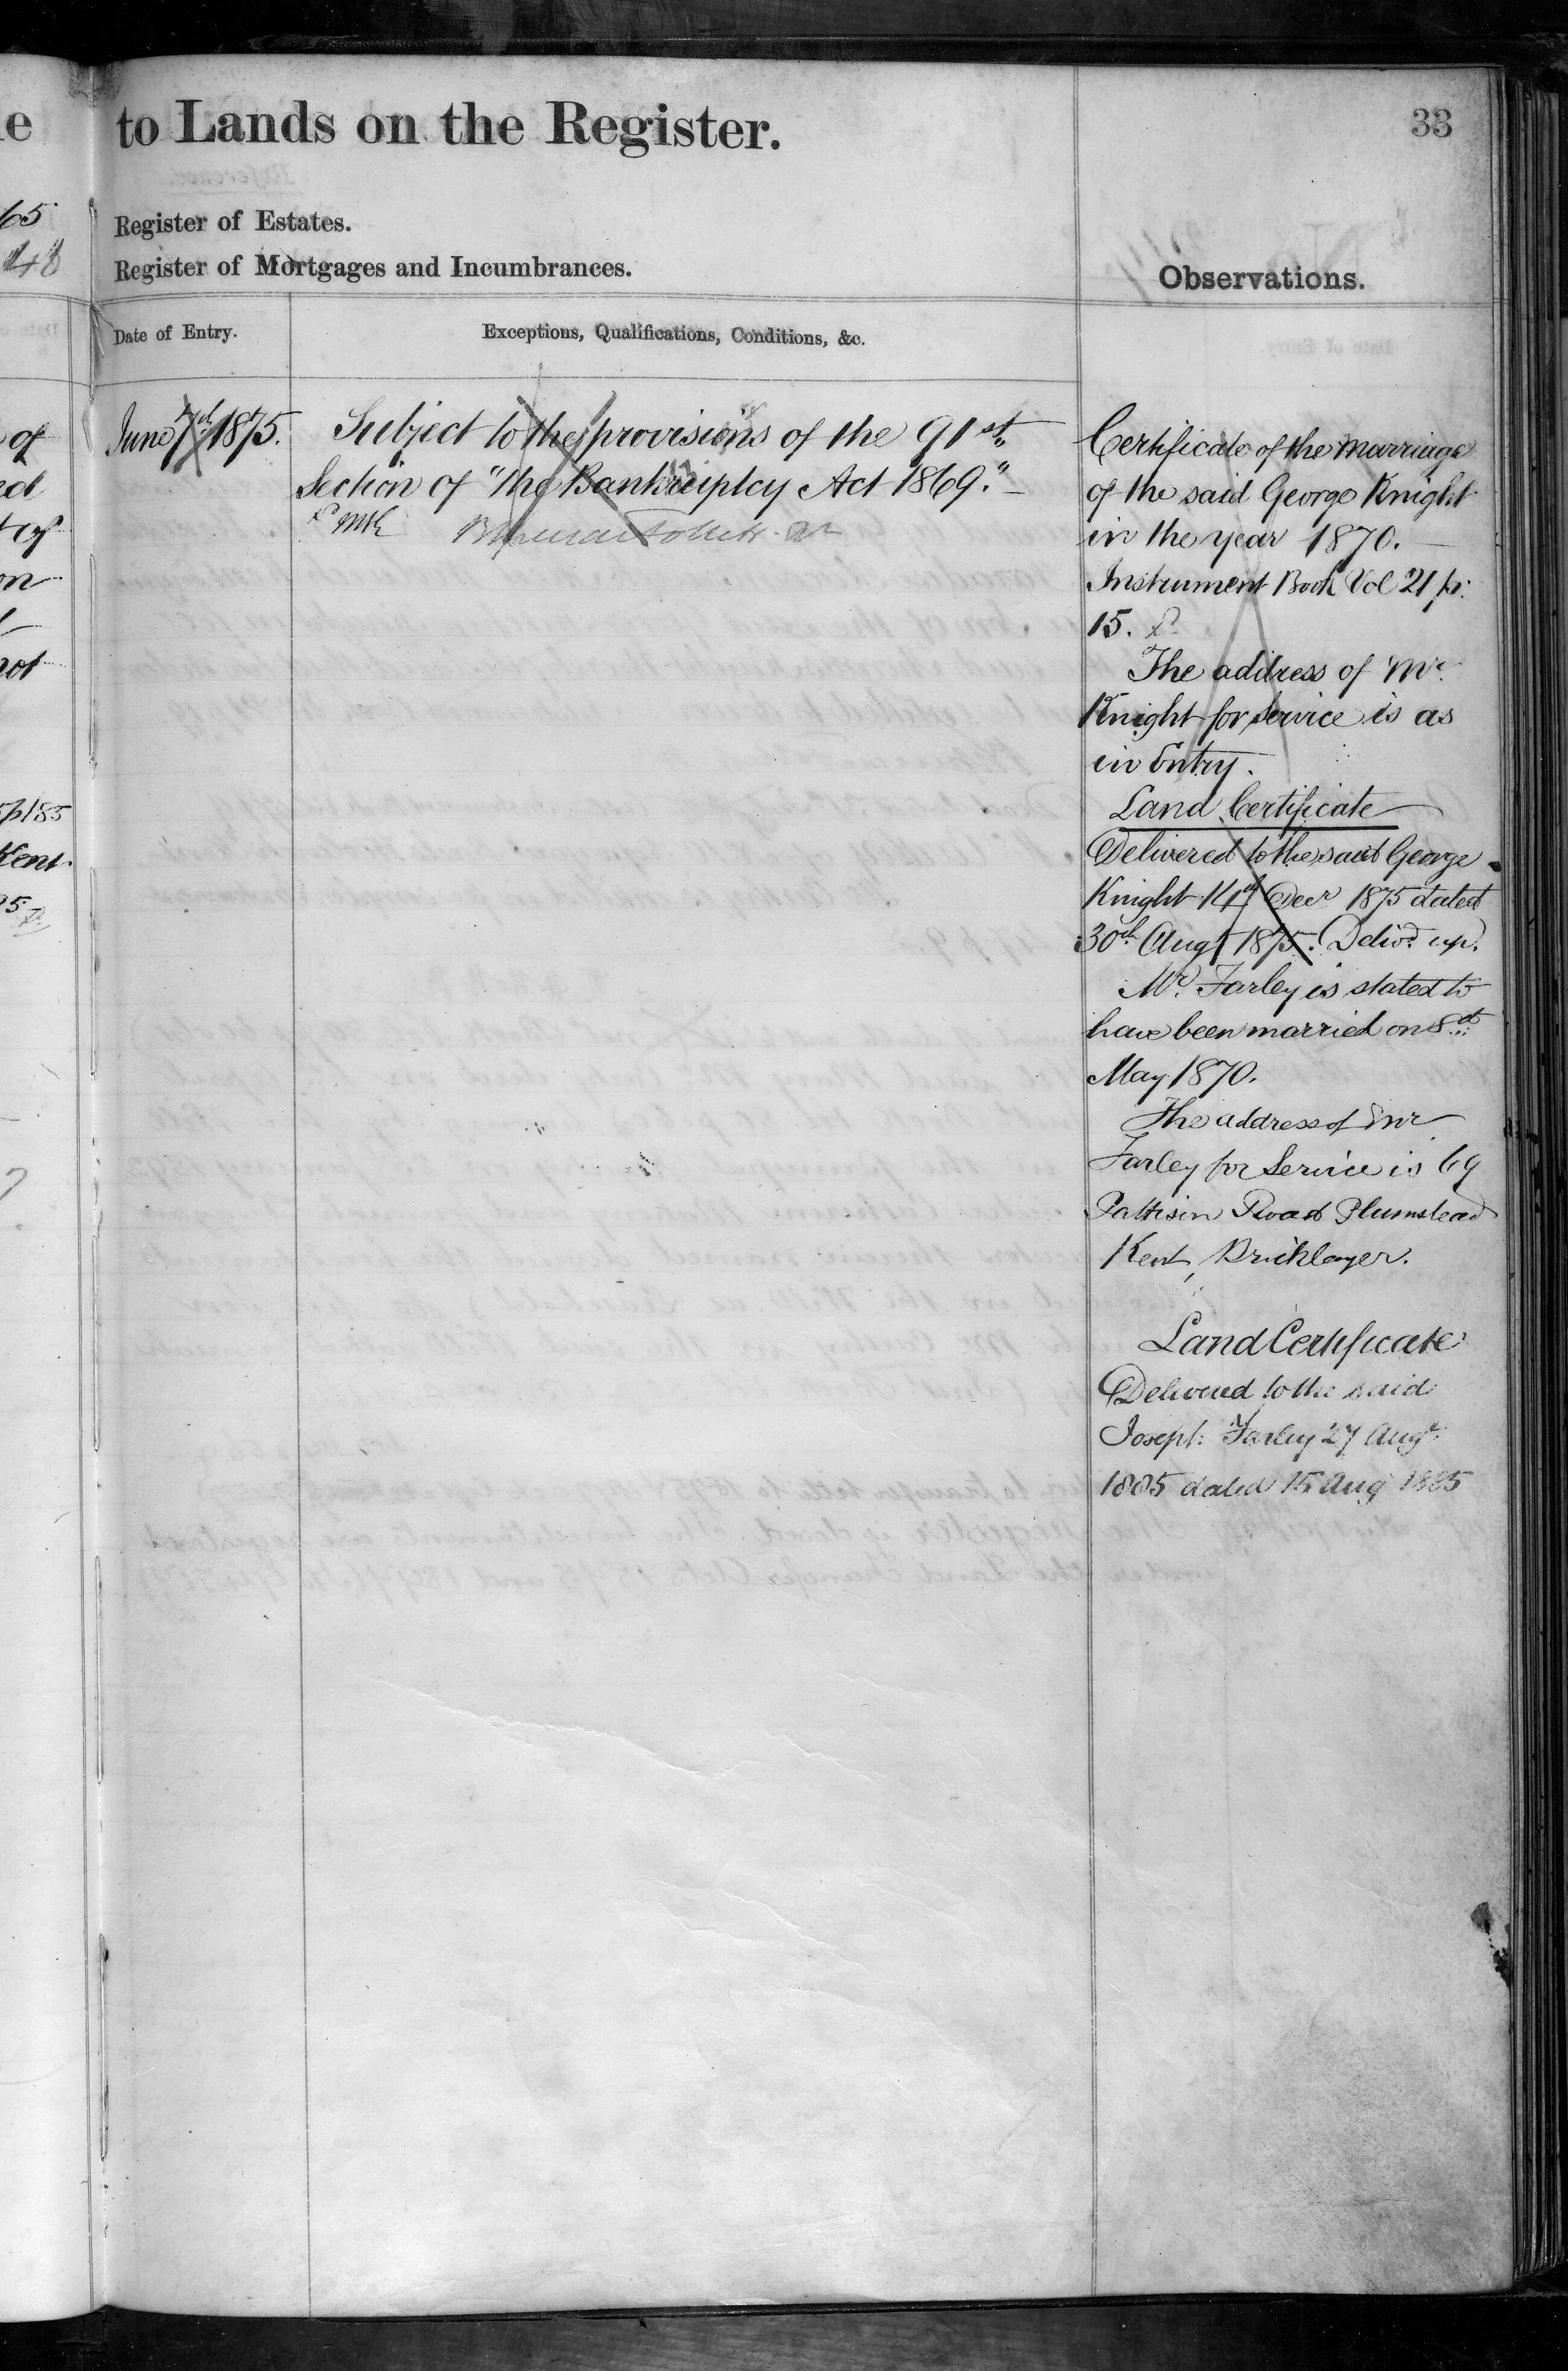 to Lands on the Register.
33
65
Register of Estates.
Register of Mortgages and Incumbrances.
Observations.
Date of Entry.
Exceptions, Qualifications, Conditions, &c.
June 7th 1875.
Subject to the provisions of the 91st
Section of "the Bankruptcy Act 1869."
of
not
Kent.
Certificate of the marriage
of the said George Knight
in the year 1870.
Instrument Book Vol 21 p:
15.
The address of Mr.
Knight for service is as
in Entry.
Land Certificate
Delivered to the said George
Knight Decr 1875 dated
30th Augt 1875. Delivd up.
Mr. Farley is stated to
have been married on 8th
May 1870.
The address of Mr
Farley for Service is 69
Pattison Road Plumstead
Kent, Bricklayer.
Land Certificate
Delivered to the said
Joseph Farley 27 Augt
1885 dated 15 Aug 1885